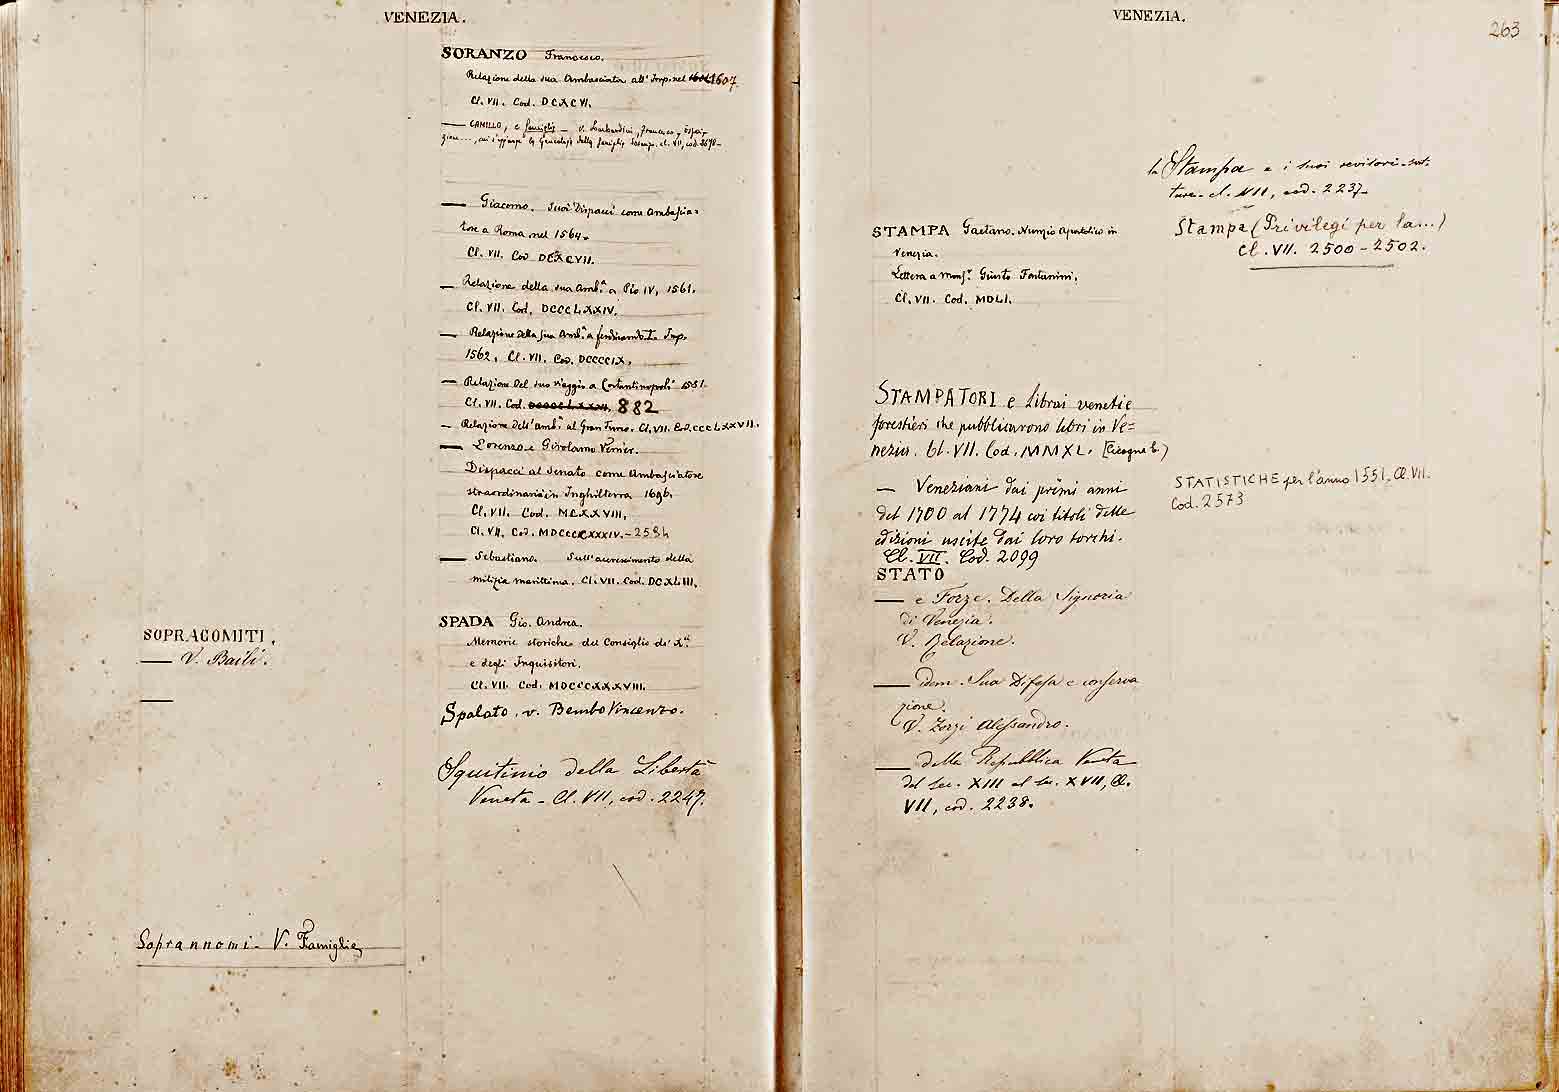 VENEZIA.
SOPRACOMITI.
— V. Baili.
—
Soprannomi - V. Famiglie
SORANZO Francesco.
Relazione della sua Ambasciata all' Imp. nel 1607.
Cl. VII. Cod. DCXCVI.
— CAMILLO, e famiglia — v. Lombardini, Francesco,
la Genealogia della famiglia Soranzo. cl. VII, cod.
— Giacomo. Suoi Dispacci come Ambascia=
tore a Roma nel 1564.
Cl. VII. Cod DCXCVII.
— Relazione della sua Amb.ª a Pio IV, 1561.
Cl. VII. Cod. DCCCLXXIV.
— Relazione della sua Amb.ª a ferdinando I.° Imp.
1562. Cl. VII. Cod. DCCCCIX.
— Relazione del suo viaggio a Costantinopoli 1581.
Cl. VII. Cod. 882
— Relazione dell' Amb.ª al Gran Turco. Cl. VII. Cod. CCCLXXVII.
— Lorenzo e Girolamo Venier.
Dispacci al Senato come Ambasciatore
straordinario in Inghilterra 1696.
Cl. VII. Cod. MCXXVIII.
Cl. VII. Cod. MDCCCCXXXIV. - 2584
— Sebastiano. Sull' accrescimento della
milizia marittima. Cl. VII. Cod. DCXLIII.
SPADA Gio. Andrea.
Memorie storiche del Consiglio de' X.ci
e degli Inquisitori.
Cl. VII. Cod. MDCCCXXXVIII.
Spalato. v. Bembo Vincenzo.
Squitinio della Libertà
Veneta - Cl. VII, cod. 2247.
VENEZIA.
263
STAMPA Gaetano. Nunzio Apostolico in
Venezia.
Lettera a Mons.r Giusto Fontanini.
Cl. VII. Cod. MDLI.
STAMPATORI e Librai veneti e
forestieri che pubblicarono libri in Ve=
nezia. Cl. VII. Cod. MMXL. (Cicogna E.)
— Veneziani dai primi anni
del 1700 al 1774 coi titoli delle
edizioni uscite dai loro torchi.
Cl. VII. Cod. 2099
STATO
— e Forze. Della Signoria
di Venezia.
V. Relazione.
— idem. Sua Difesa e conserva
zione.
V. Zorzi Alessandro.
— della Repubblica Veneta
del sec. XIII al sec. XVII, Cl.
VII, cod. 2238.
la Stampa e i suoi
cl. VII, cod. 2237-
Stampa (Privilegi per la...)
Cl. VII. 2500 - 2502.
STATISTICHE per l'anno 1551. Cl. VII.
Cod. 2573